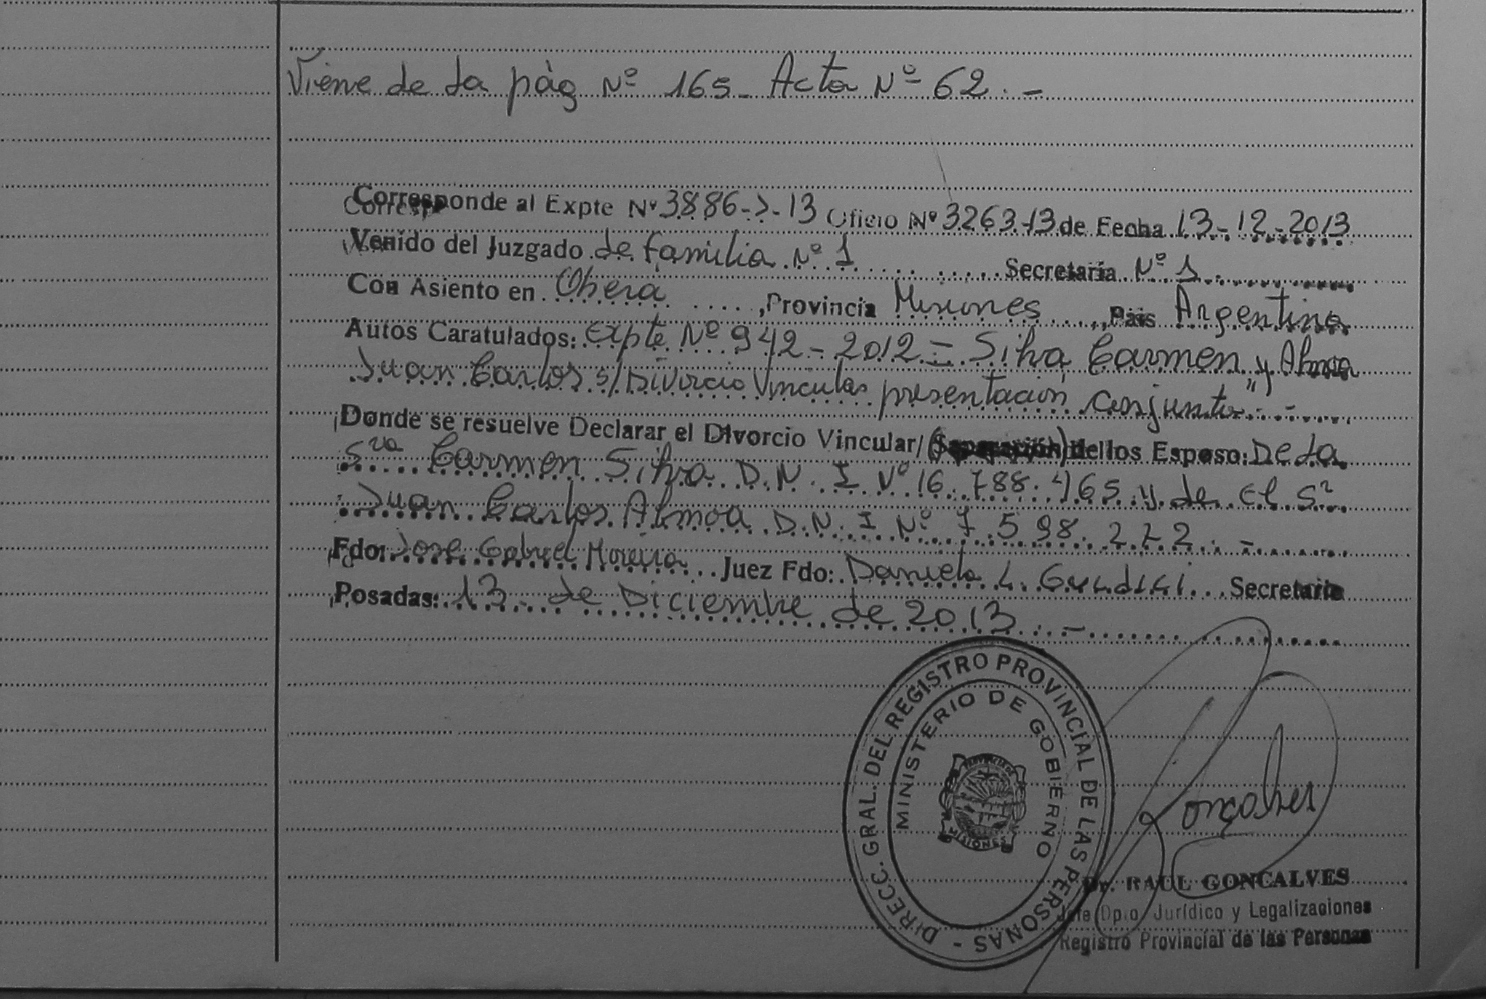 Viene de la pág Nº 165_ Acta Nº 62._
Corresponde al Expte Nº 3886-J-13 Oficio Nº 3263-13 de Fecha 13-12-2013
Venido del Juzgado de Familia Nº 1 Secretaría Nº 1
Con Asiento en Obera, Provincia Misiones, Pais Argentina
Autos Caratulados: Expte Nº 942-2012= Silva Carmen y Almoa
Juan Carlos s/Divorcio Vincular presentación conjunta"._
Donde se resuelve Declarar el Divorcio Vincular/(Separación) de los Esposo: De La
Sra Carmen Silva D.N.I Nº 16.788.465 y de El Sr
Juan Carlos Almoa D.N.I Nº 7.598.222._
Fdo: Jose Gabriel Moreira Juez Fdo: Daniela L. Secretaria
Posadas: 13_ de Diciembre de 2013._
DIRECC. GRAL. DEL REGISTRO PROVINCIAL DE LAS PERSONAS -
MINISTERIO DE GOBIERNO
MISIONES
Gonçalves
Dr. RAUL GONCALVES
Jefe Dpto. Jurídico y Legalizaciones
Registro Provincial de las Personas